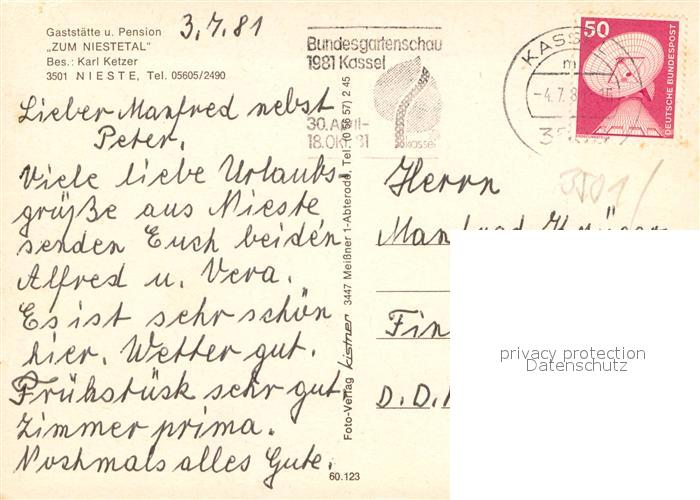 Gaststätte u. Pension
„ZUM NIESTETAL"
Bes.: Karl Ketzer
3501 NIESTE, Tel. 05605/2490
3.7.81
Lieber Manfred nebst
Peter.
Viele liebe Urlaubs-
grüße aus Nieste,
senden Euch beiden
Alfred u. Vera.
Es ist sehr schön
hier. Wetter gut.
Frühstüsk sehr gut
Zimmer prima.
Noshmals alles Gute.
Foto-Verlag kistner 3447 Meißner 1-Abterode, Tel. (0 56 57) 2 45
60.123
Bundesgartenschau
1981 Kassel
30. April-
18. Okt. 81
kassel
KASSEL
-4.7.8
50
DEUTSCHE BUNDESPOST
3501/
Herrn
Manfred
Fin
D.D.
privacy protection
Datenschutz